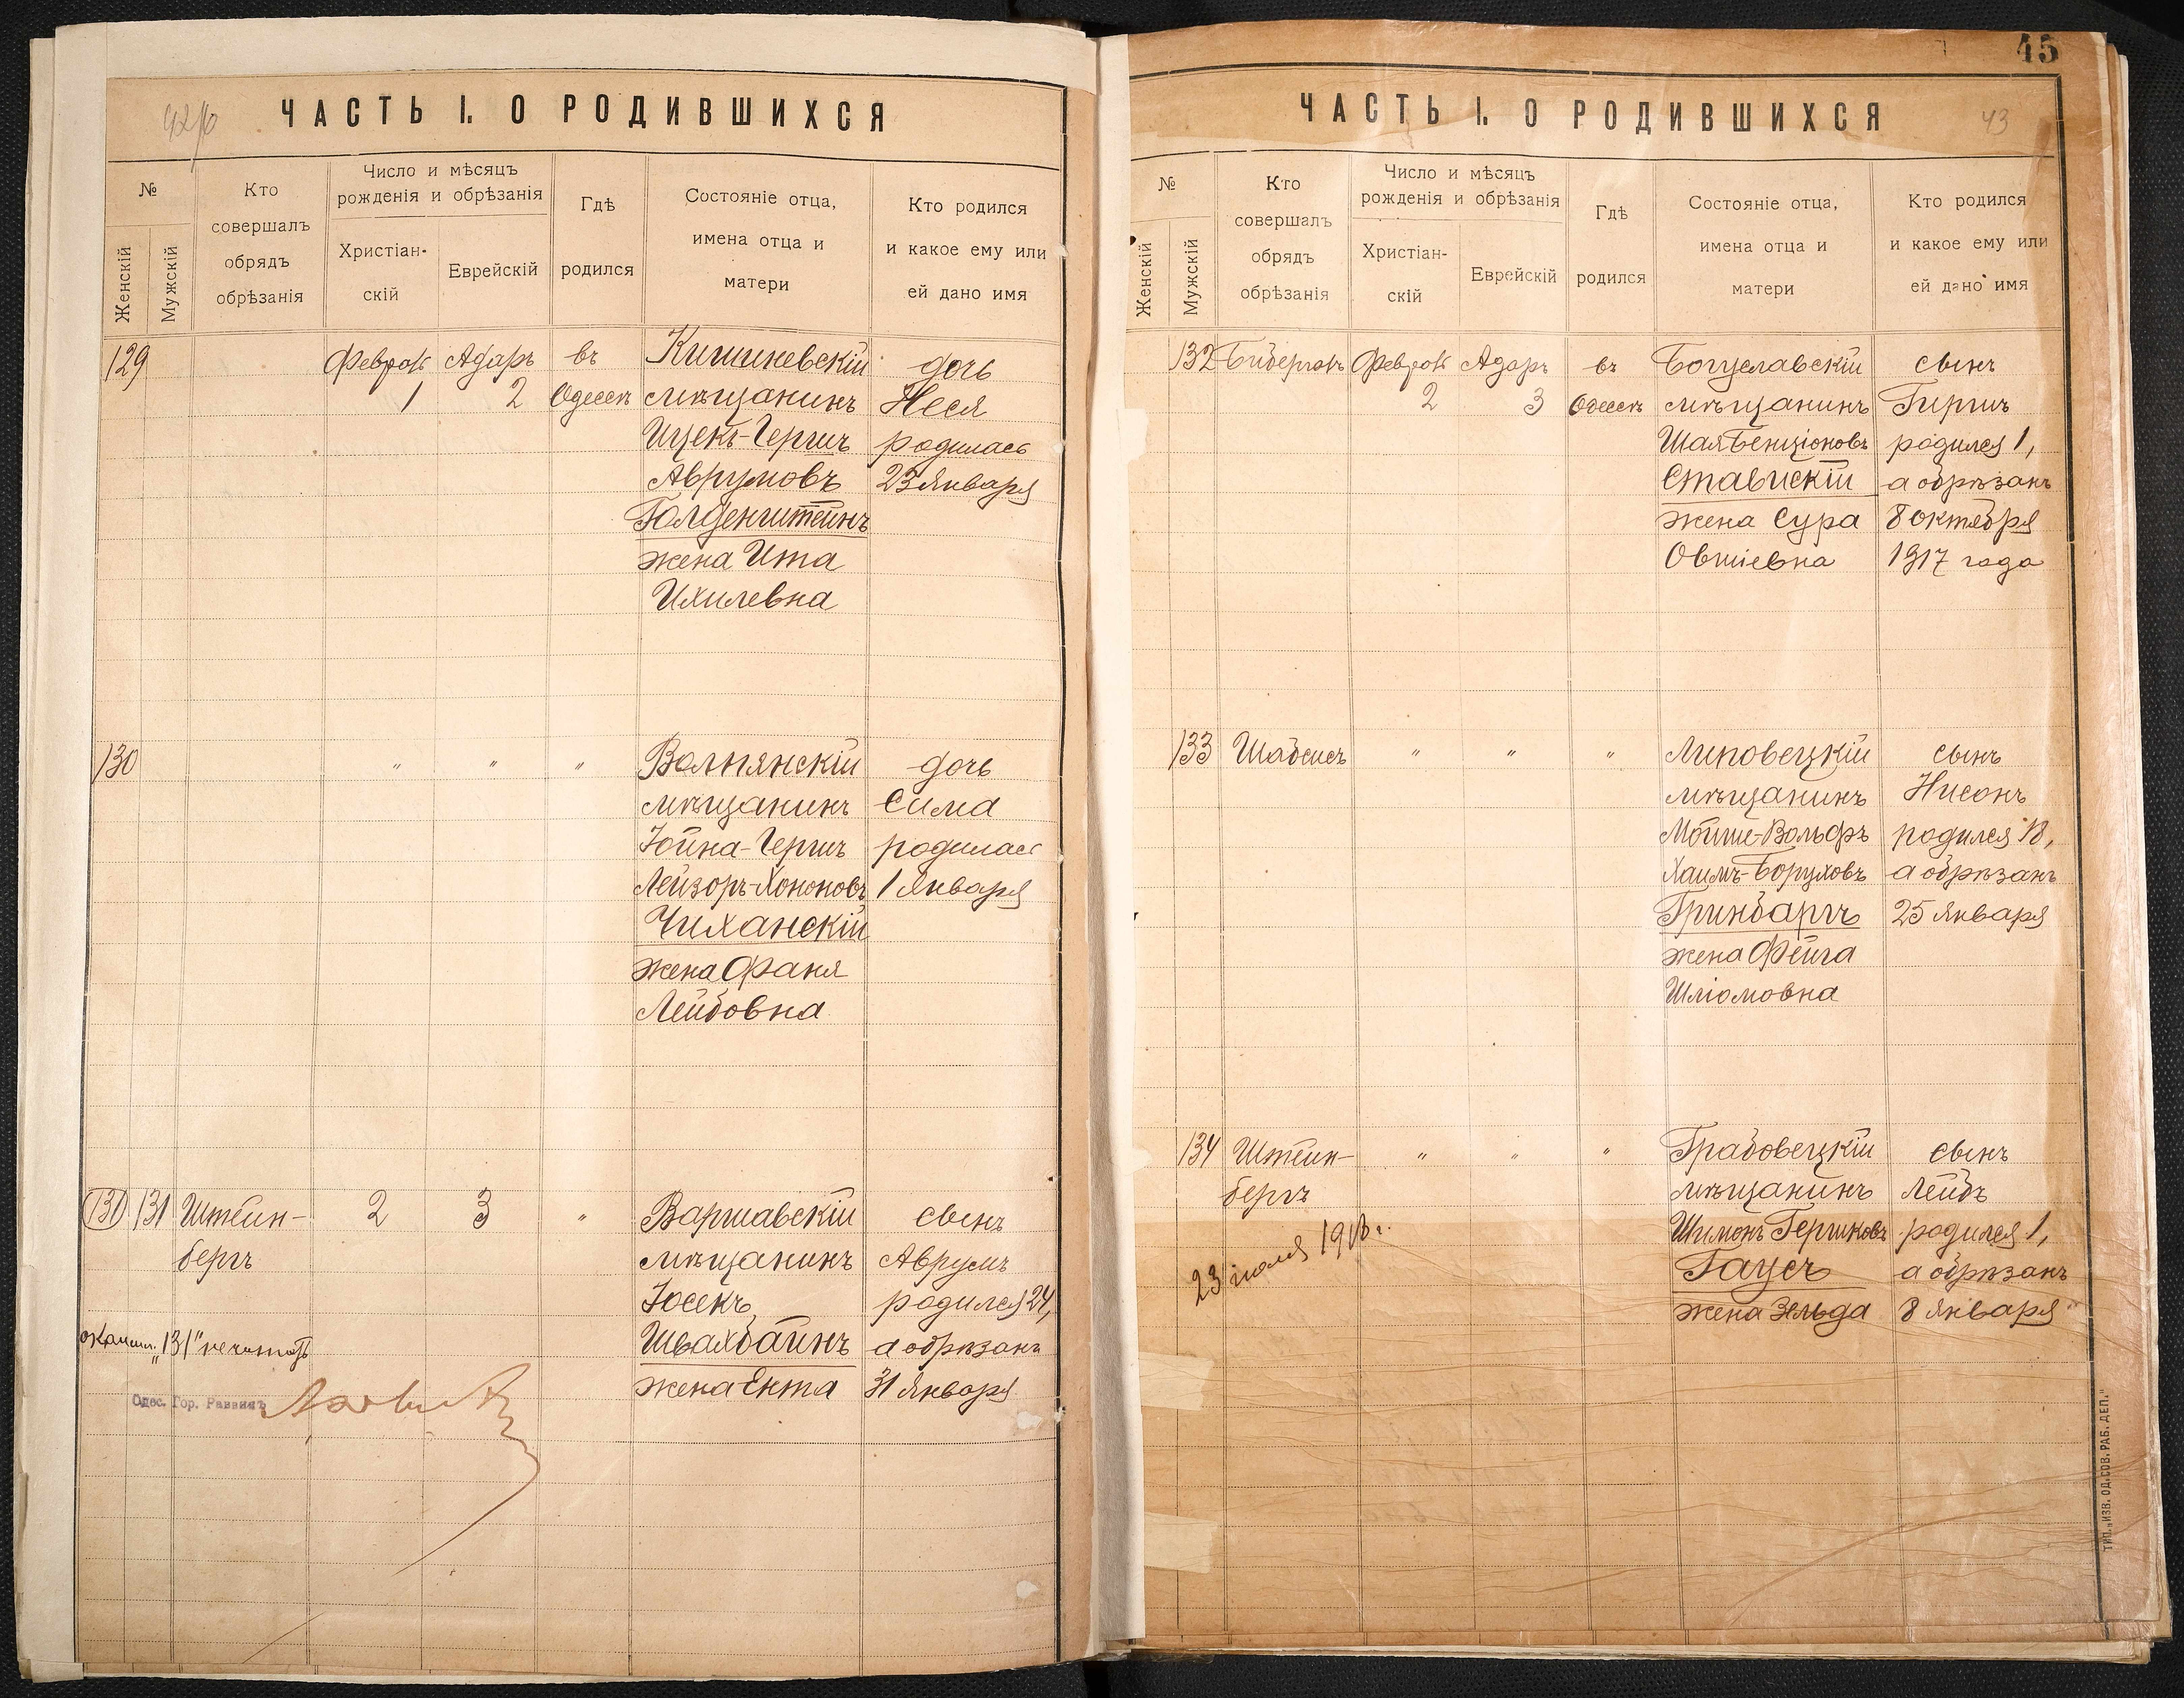 42/об
ЧАСТЬ I. О РОДИВШИХСЯ
№
Женскій
Мужскій
Кто
совершалъ
обрядъ
обрѣзанія
Число и мѣсяцъ
рожденія и обрѣзанія
Христіан-
скій
Еврейскій
Гдѣ
родился
Состояніе отца,
имена отца и
матери
Кто родился
и какое ему или
ей дано имя
129
Феврал
1
Адаръ
2
въ
Одессѣ
Кишиневскій
мѣщанинъ
Ицекъ-Гершъ
Аврумовъ
Голденштейнъ
жена Ита
Ихилевна
дочь
Неся
родилась
23 Января
130
" " "
Волнянскій
мѣщанинъ
Йойна-Гершъ
Лейзоръ-Хононовъ
Чиханскій
жена Фаня
Лейбовна
дочь
Сима
родилась
1 Января
131 131
Штейн-
бергъ
2 3 "
Варшавскій
мѣщанинъ
Йосекъ
Швахбаинъ
жена Ента
сынъ
Аврумъ
родился 24,
а обрѣзанъ
31 Января
"131" не читать
Одес. Гор. Раввинъ
45
43
ЧАСТЬ I. О РОДИВШИХСЯ
№
Женскій
Мужскій
Кто
совершалъ
обрядъ
обрѣзанія
Число и мѣсяцъ
рожденія и обрѣзанія
Христіан-
скій
Еврейскій
Гдѣ
родился
Состояніе отца,
имена отца и
матери
Кто родился
и какое ему или
ей дано имя
132
Феврал
2
Адаръ
3
въ
Одессѣ
Богуславскій
мѣщанинъ
Шая Бенціоновъ
Ставискій
жена Сура
Овшіевна
сынъ
Гиршъ
родился 1,
а обрѣзанъ
8 октября
1917 года
133
Шабсисъ
" " "
Липовецкій
мѣщанинъ
Мойше-Вольфъ
Хаимъ-Боруховъ
Гринбаргъ
жена Фейга
Шліомовна
сынъ
Нисонъ
родился 18,
а обрѣзанъ
25 Января
134
Штейн-
бергъ
23 июля 1918 г.
" " "
Грабовецкій
мѣщанинъ
Шимонъ Гершковъ
Гаусъ
жена Зельда
сынъ
Лейбъ
родился 1,
а обрѣзанъ
8 Января
ТИП. „ИЗВ. ОД. СОВ. РАБ. ДЕП."